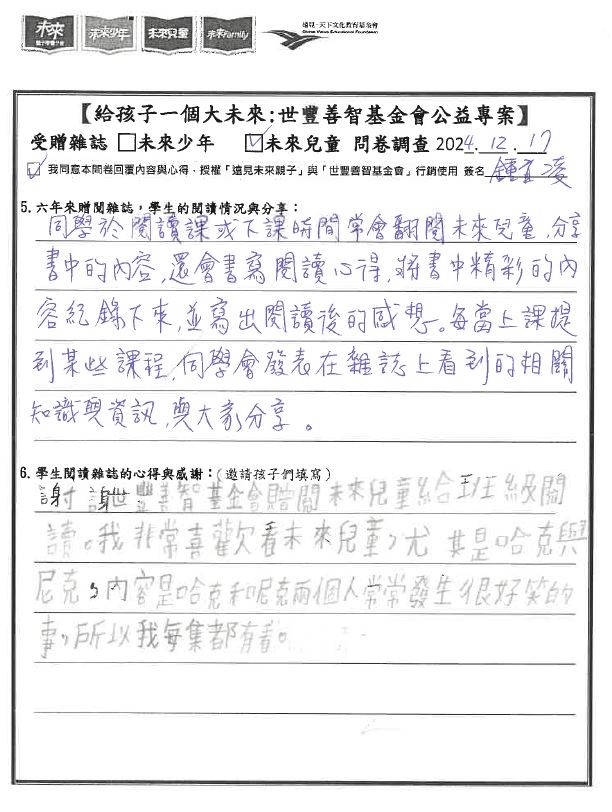 未來 未來少年 未來兒童 未來Family 遠見‧天下文化教育基金會
Global Views Educational Foundation
【給孩子一個大未來:世豐善智基金會公益專案】
受贈雜誌 □未來少年 ☑未來兒童 問卷調查 2024.12.17
☑我同意本問卷回覆內容與心得、授權「遠見未來親子」與「世豐善智基金會」行銷使用 簽名 鍾宜凌
5.六年來贈閱雜誌,學生的閱讀情況與分享:
同學於閱讀課或下課時間常會翻閱未來兒童,分享
書中的內容,還會書寫閱讀心得,將書中精彩的內
容紀錄下來,並寫出閱讀後的感想。每當上課提
到某些課程,同學會發表在雜誌上看到的相關
知識與資訊,與大家分享。
6.學生閱讀雜誌的心得與感謝:(邀請孩子們填寫)
謝謝世豐善智基金會贈閱未來兒童給班級閱
讀。我非常喜歡看未來兒童,尤其是哈克與
尼克,內容是哈克和呢克兩個人常常發生很好笑的
事,所以我每集都有看。